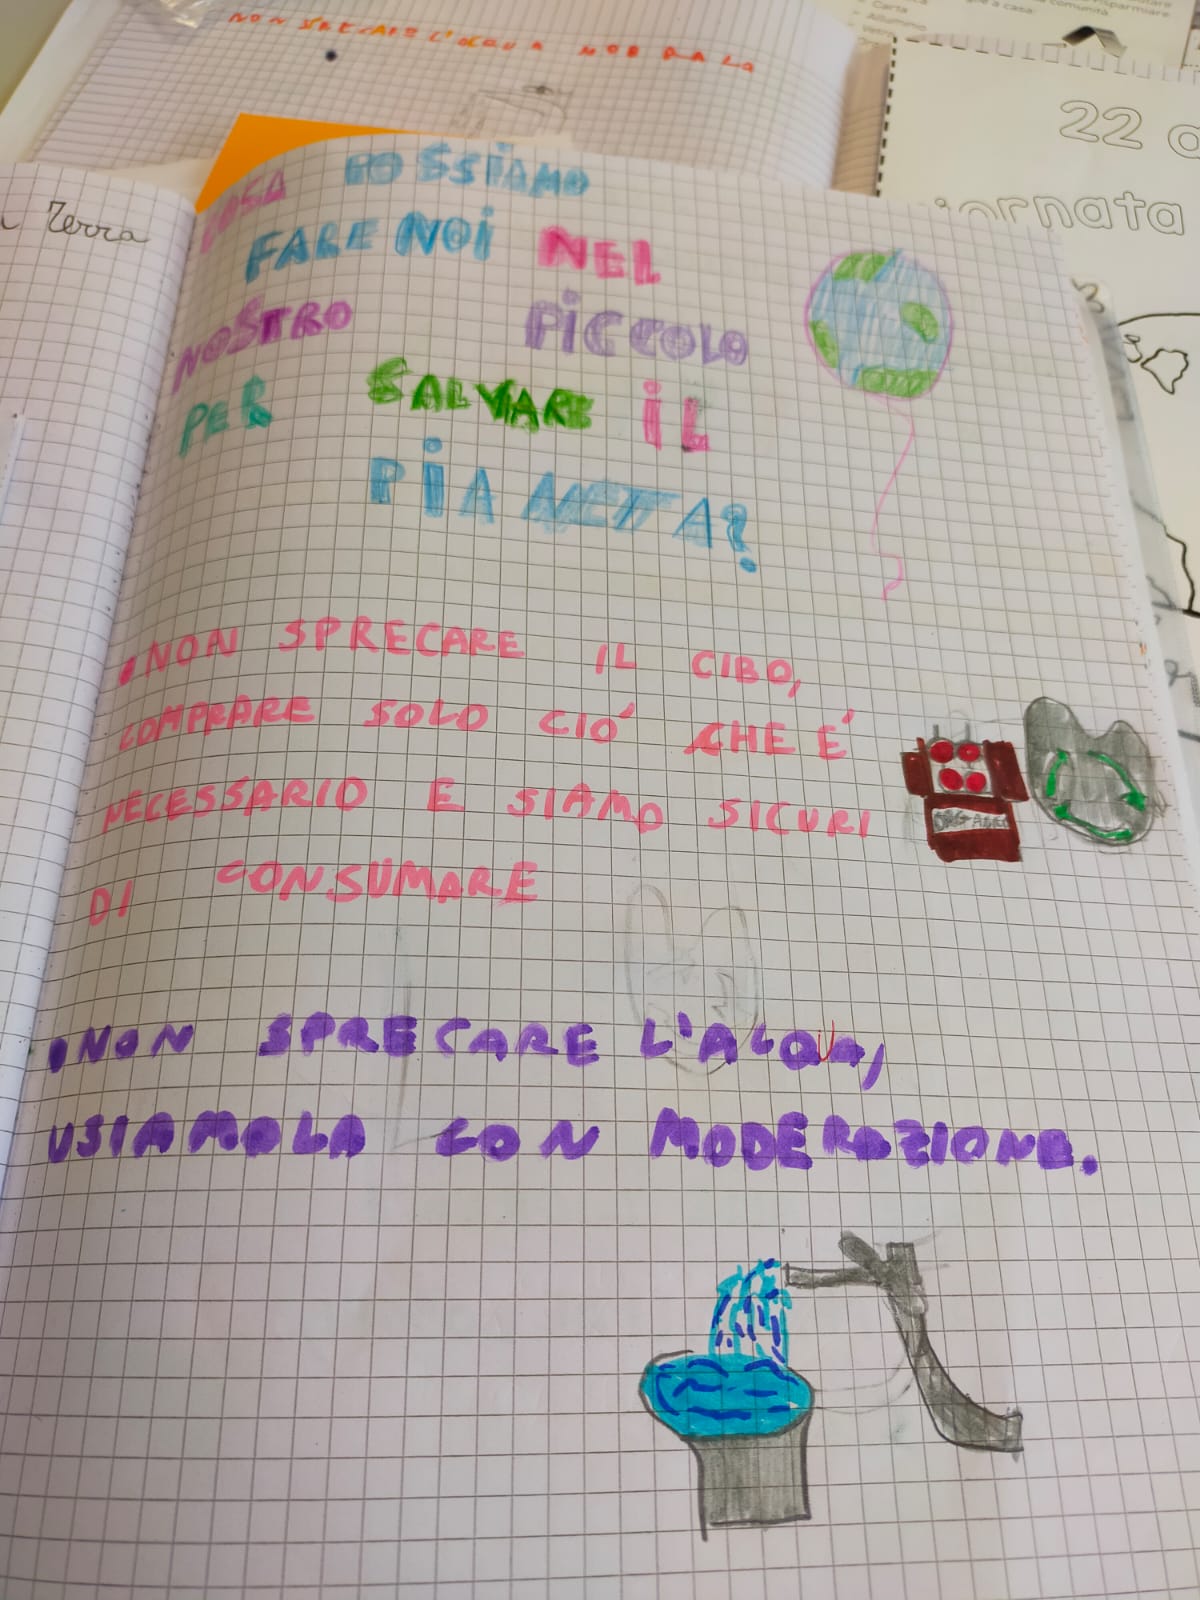 NON SPRECARE L'ACQUA
22
giornata
Carta
Alluminio
comunità
risparmiare
a casa:
Terra
COSA POSSIAMO
FARE NOI NEL
NOSTRO PICCOLO
PER SALVARE IL
PIANETA?
•NON SPRECARE IL CIBO,
COMPRARE SOLO CIÓ CHE É
NECESSARIO E SIAMO SICURI
DI CONSUMARE
•NON SPRECARE L'ACQUA,
USIAMOLA CON MODERAZIONE.